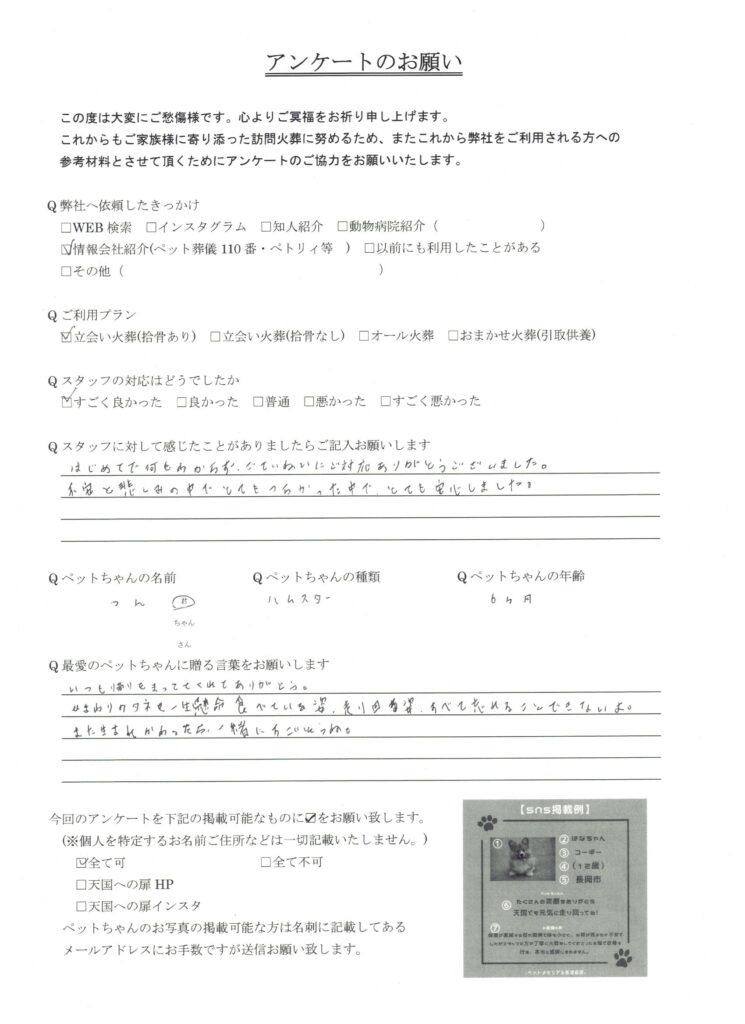 アンケートのお願い
この度は大変にご愁傷様です。心よりご冥福をお祈り申し上げます。
これからもご家族様に寄り添った訪問火葬に努めるため、またこれから弊社をご利用される方への
参考材料とさせて頂くためにアンケートのご協力をお願いいたします。
Q 弊社へ依頼したきっかけ
□WEB 検索 □インスタグラム □知人紹介 □動物病院紹介（ ）
☑情報会社紹介(ペット葬儀 110 番・ペトリィ等 ) □以前にも利用したことがある
□その他（ ）
Q ご利用プラン
☑立会い火葬(拾骨あり) □立会い火葬(拾骨なし) □オール火葬 □おまかせ火葬(引取供養)
Q スタッフの対応はどうでしたか
☑すごく良かった □良かった □普通 □悪かった □すごく悪かった
Q スタッフに対して感じたことがありましたらご記入お願いします
はじめてで何もわからず、ごていねいにご対応ありがとうございました。
不安と悲しみの中で とてもつらかった中で、とても安心しました。
Q ペットちゃんの名前 Q ペットちゃんの種類 Q ペットちゃんの年齢
つん 君 ハムスター 6ヶ月
ちゃん
さん
Q 最愛のペットちゃんに贈る言葉をお願いします
いつも帰りをまっててくれてありがとう。
ひまわりのタネを一生懸命 食べている姿、走り回る姿、すべて忘れることできないよ。
また生まれかわったら、一緒に
今回のアンケートを下記の掲載可能なものに☑をお願い致します。
(※個人を特定するお名前ご住所などは一切記載いたしません。)
☑全て可 □全て不可
□天国への扉 HP
□天国への扉インスタ
ペットちゃんのお写真の掲載可能な方は名刺に記載してある
メールアドレスにお手数ですが送信お願い致します。
【sns掲載例】
① ② はなちゃん
③ コーギー
④ （12歳）
⑤ 長岡市
⑥ たくさんの笑顔をありがとう
天国でも元気に走り回ってね!
⑦